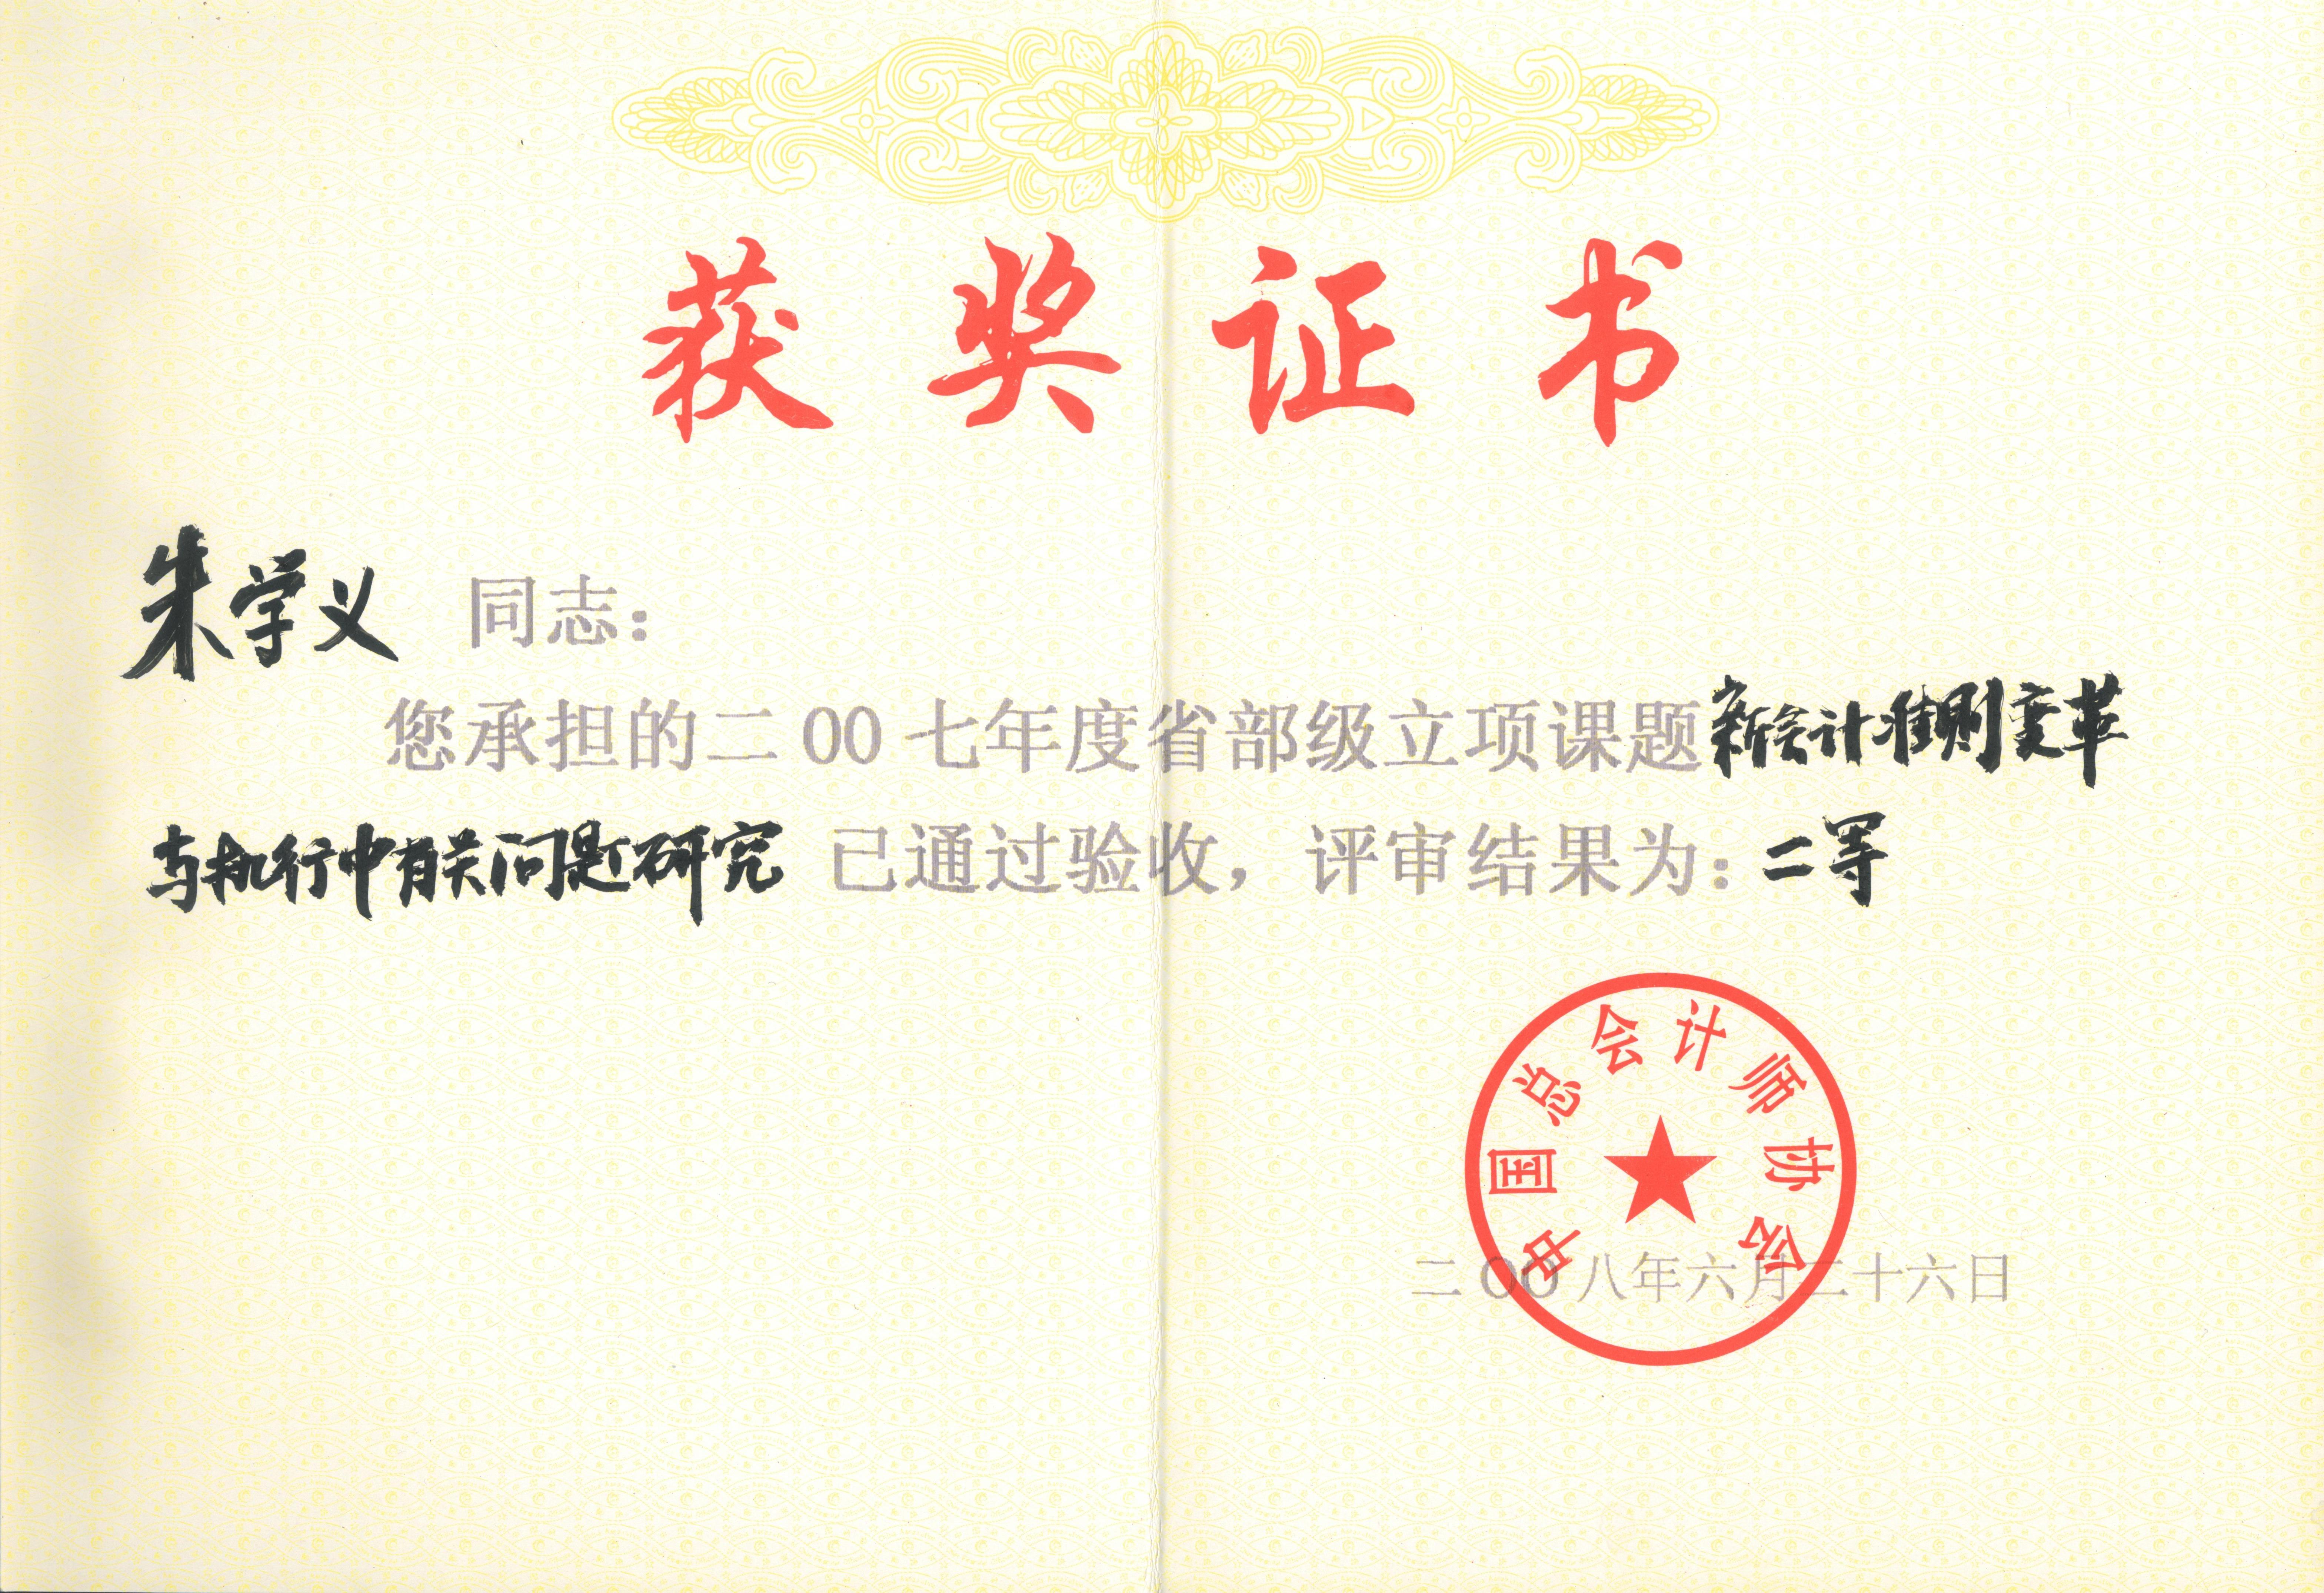 获奖证书
朱学义 同志：
您承担的二00七年度省部级立项课题新会计准则变革
与执行中有关问题研究 已通过验收，评审结果为：二等
中国总会计师协会
二00八年六月二十六日